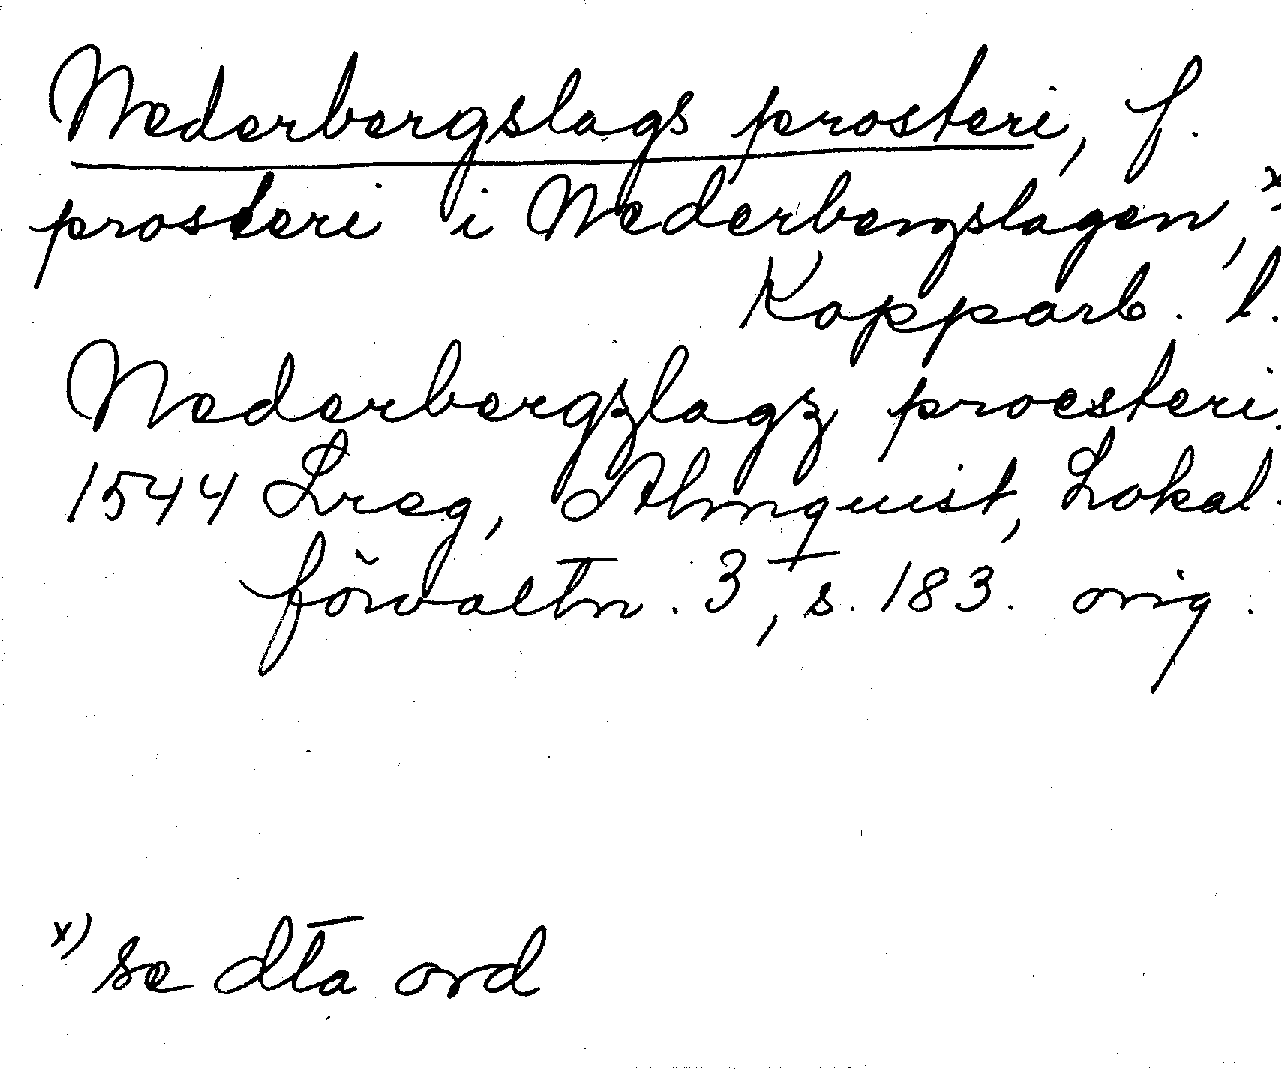 Nederbergslags prosteri, f.
prosteri i Nederbergslagen, x)
Kopparb. l.
Nederbergzlagz proesteri
1544 Lreg, Almquist, Lokal-
förvaltn. 3, s. 183. orig.
x) se dta ord